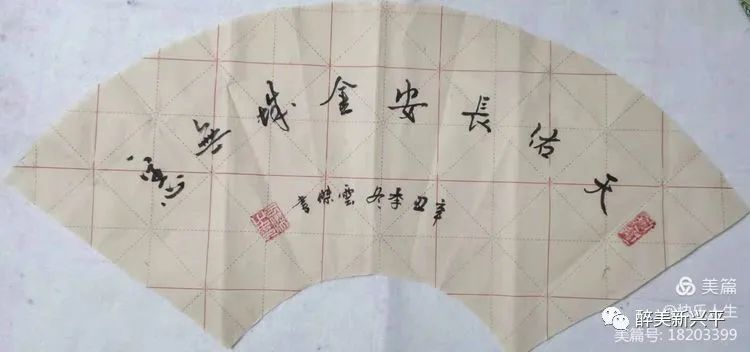 天佑長安金城無恙
辛丑季冬雲傑書
美篇
@快乐人生
醉美新兴平
美篇号: 18203399